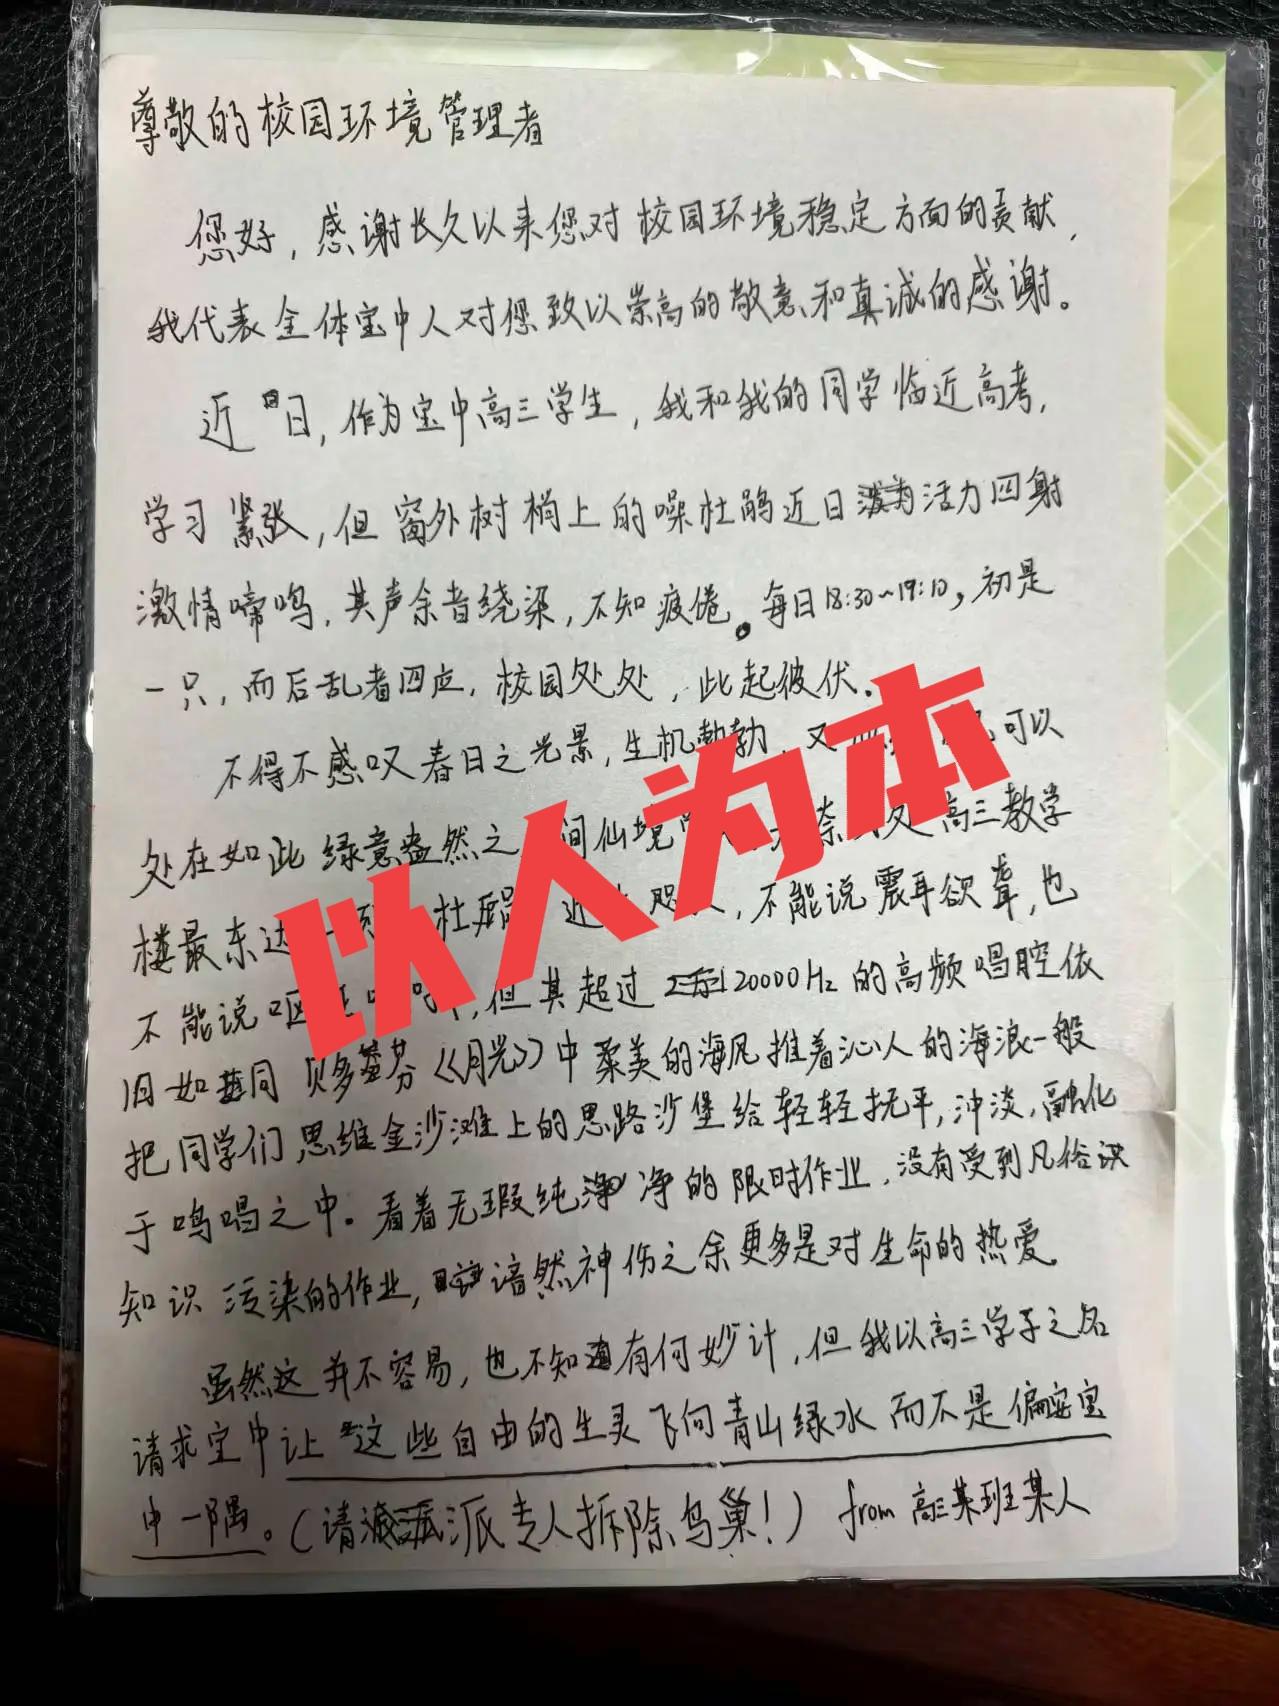 尊敬的校园环境管理者
您好，感谢长久以来您对校园环境稳定方面的贡献，
我代表全体宝中人对您致以崇高的敬意和真诚的感谢。
近日，作为宝中高三学生，我和我的同学临近高考，
学习紧张，但窗外树梢上的噪杜鹃近日活力四射
激情啼鸣，其声余音绕梁，不知疲倦。每日18:30~19:10，初是
一只，而后乱者四应，校园处处，此起彼伏.
不得不感叹春日之光景，生机勃勃，又 可以
处在如此绿意盎然之 间仙境 奈 处高三教学
楼最东边 杜鹃 近 咫 ，不能说震耳欲聋，也
不能说呕 ，但其超过20000Hz的高频唱腔依
旧如同贝多芬《月光》中柔美的海风推着沁人的海浪一般
把同学们思维金沙滩上的思路沙堡给轻轻抚平，冲淡，融化
于鸣唱之中。看着无瑕纯净的限时作业，没有受到凡俗
知识污染的作业，谙然神伤之余更多是对生命的热爱。
虽然这并不容易，也不知有何妙计，但我以高三学子之名
请求宝中让这些自由的生灵飞向青山绿水而不是偏安宝
中一隅。（请派专人拆除鸟巢！） from 高三某班某人
以人为本